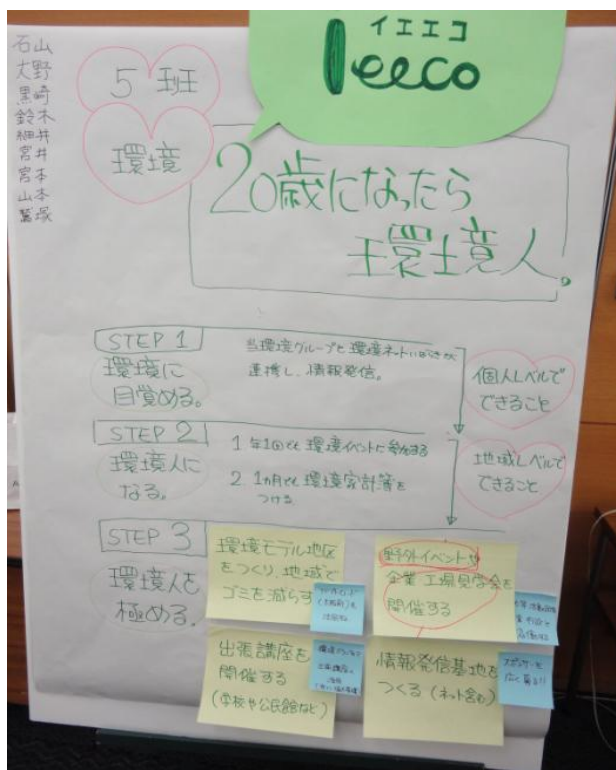 イエエコ
Ieeco
石山
大野
黒崎
鈴木
細井
宮井
宮本
山本
鷲塚
5班
環境
20歳になったら
環境人。
STEP 1
環境に
目覚める。
当環境グループと環境ネット
連携し、情報発信。
個人レベルで
できること
STEP 2
環境人に
なる。
1 年1回でも環境イベントに参加する
2 1ヵ月でも環境家計簿を
つける
地域レベルで
できること
STEP 3
環境人を
極める。
環境モデル地区
をつくり、地域で
ゴミを減らす
野外イベントや
企業工場見学会を
開催する
出張講座を
開催する
(学校や公民館など)
情報発信基地を
つくる(ネット含む)
スポンサーを
広く募る!!